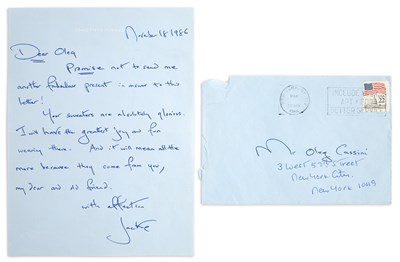 November 18 1986
Dear Oleg
Promise not to send me
another fabulous present in answer to this
letter!
Your sweaters are absolutely glorious.
I will have the greatest joy and fun
wearing them. And it will mean all the
more because they come from you,
my dear and old friend.
with affection
Jackie
INCLUDE
APT #
LETTER
USA 22
Mr Oleg Cassini
3 West 57th Street
New York City,
New York 10019